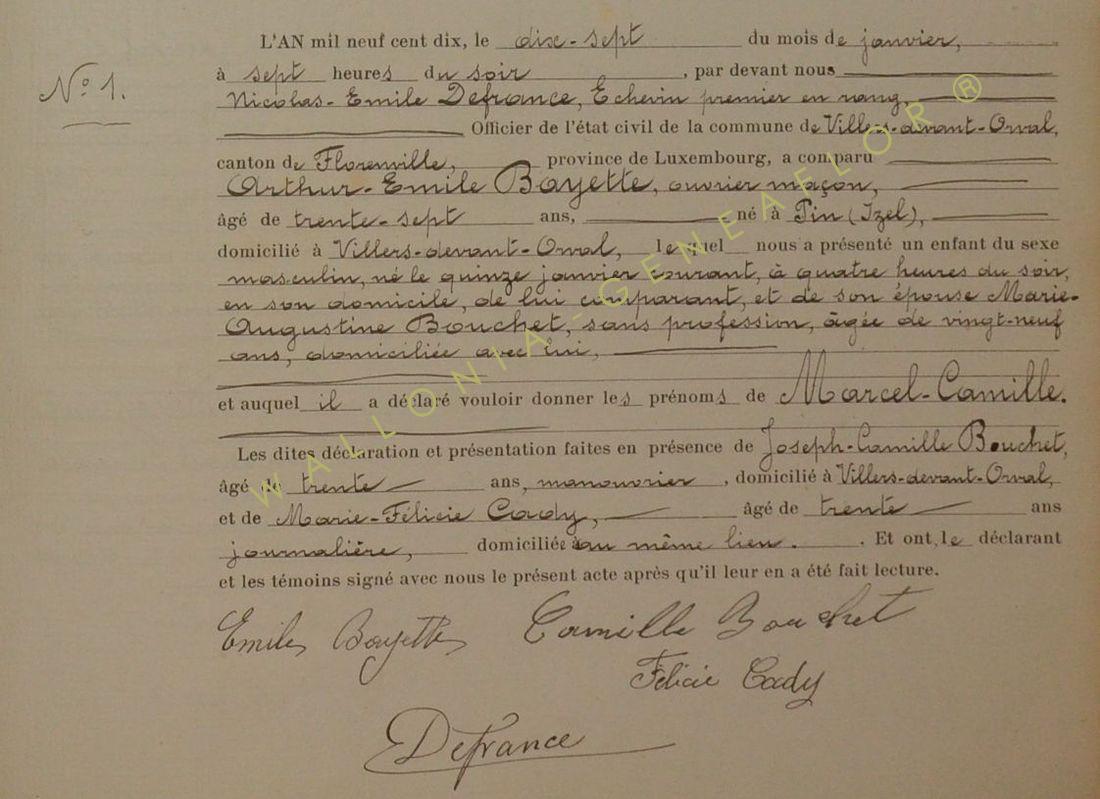 L'AN mil neuf cent dix, le dix-sept du mois de janvier,
N° 1.
à sept heures du soir, par devant nous
Nicolas-Emile Defrance, Echevin premier en rang,
Officier de l'état civil de la commune de Villers-devant-Orval,
canton de Florenville, province de Luxembourg, a comparu
Arthur-Emile Bayette, ouvrier maçon,
âgé de trente-sept ans, né à Pin (Izel),
domicilié à Villers-devant-Orval, lequel nous a présenté un enfant du sexe
masculin, né le quinze janvier courant, à quatre heures du soir,
en son domicile, de lui comparant, et de son épouse Marie-
Augustine Bouchet, sans profession, âgée de vingt-neuf
ans, domiciliée avec lui,
et auquel il a déclaré vouloir donner les prénoms de Marcel-Camille.
Les dites déclaration et présentation faites en présence de Joseph-Camille Bouchet,
âgé de trente ans, manouvrier, domicilié à Villers-devant-Orval,
et de Marie-Félicie Cady, âgé de trente ans
journalière, domiciliée au même lieu. . Et ont, le déclarant
et les témoins signé avec nous le présent acte après qu'il leur en a été fait lecture.
Emile Bayette Camille Bouchet
Félicie Cady
Defrance
WALLONIA-GENEAFLOR ®